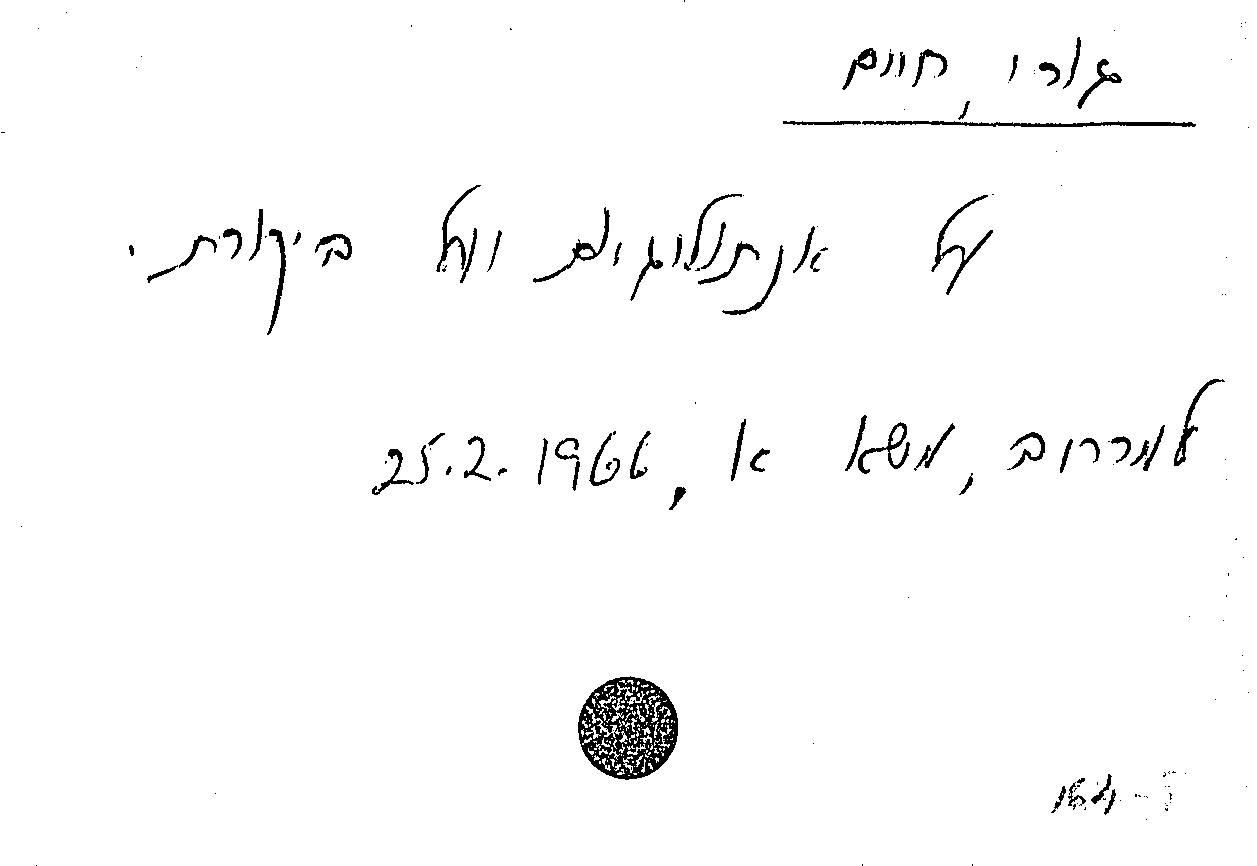 גורי, חיים
על אנתולוגיות ועל ביקורת.
למרחב, משא א, 25.2.1966